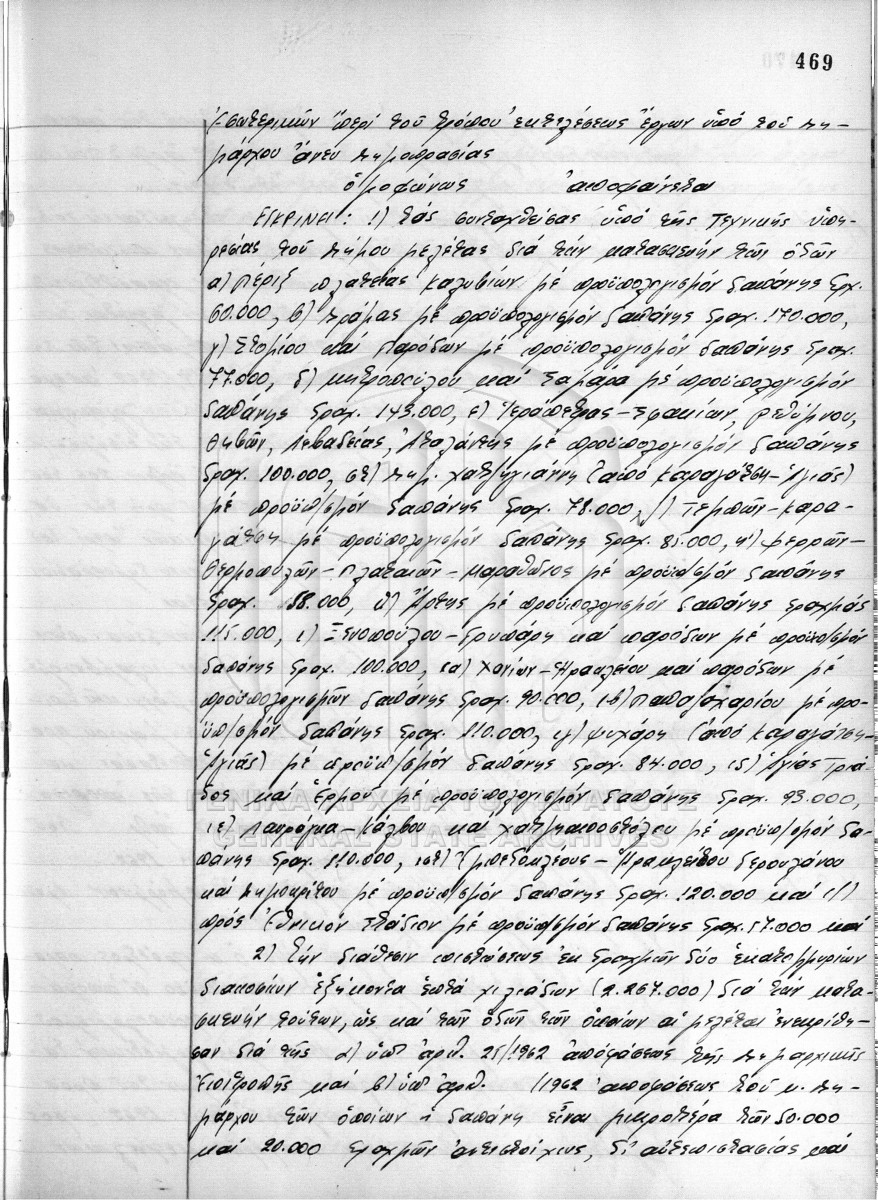 469
Ἐσωτερικῶν "περί τοῦ τρόπου ἐκτελέσεως ἔργων ὑπό τοῦ Δη-
μάρχου ἄνευ δημοπρασίας
ὁμοφώνως ἀποφαίνεται
ΕΓΚΡΙΝΕΙ: 1) τάς συνταχθείσας ὑπό τῆς Τεχνικῆς ὑπη-
ρεσίας τοῦ Δήμου μελέτας διά τήν κατασκευήν τῶν ὁδῶν
α) Πέριξ πλατείας Καλυβίων μέ προϋπολογισμόν δαπάνης δρχ.
60.000, β) Δράμας μέ προϋπολογισμόν δαπάνης δραχ. 170.000,
γ) Στομίου καί Παρόδων μέ προϋπολογισμόν δαπάνης δραχ.
77.000, δ) Μητροπούλου καί Σαμάρα μέ προϋπολογισμόν
δαπάνης δραχ. 143.000, ε) Ἱεραπέτρας-Σφακίων, Ρεθύμνου,
Θηβῶν, Λεβαδείας, Ἀταλάντης μέ προϋπολογισμόν δαπάνης
δραχ. 100.000, στ) Δημ. Χατζηγιάννη (ἀπό Καραγάτση-Ἁγιᾶς)
μέ προϋπ/σμόν δαπάνης δραχ. 78.000, ζ) Τεμπῶν-Καρα-
γάτση μέ προϋπολογισμόν δαπάνης δραχ. 85.000, η) Φερρῶν-
Θερμοπυλῶν-Πλαταιῶν-Μαραθῶνος μέ προϋπ/σμόν δαπάνης
δραχ. 58.000, θ) Ἄρτης μέ προϋπολογισμόν δαπάνης δραχμάς
115.000, ι) Ξενοπούλου-Γρυπάρη καί παρόδων μέ προϋπ/σμόν
δαπάνης δραχ. 100.000, ια) Χανίων-Ηρακλείου καί παρόδων μέ
προϋπολογισμῶν δαπάνης δραχ. 90.000, ιβ) Παπαζαχαρίου μέ προ-
ϋπ/σμόν δαπάνης δραχ. 110.000, ιγ) Ψυχάρη (ἀπό Καραγάτση-
Ἁγιᾶς) μέ προϋπ/σμόν δαπάνης δραχ. 84.000, ιδ) Ἁγίας Τριά-
δος καί Ἑρμοῦ μέ προϋπολογισμόν δαπάνης δραχ. 93.000,
ΓΕΝΙΚΑ ΑΡΧΕΙΑ ΤΟΥ ΚΡΑΤΟΥΣ
ιε) Λαυράγκα-Κάλβου καί Χατζηαποστόλου μέ προϋπ/σμόν δα-
GENERAL STATE ARCHIVES
πάνης δραχ. 110.000, ιστ) Ἐμπεδοκλέους-Ἡρακλείδου Δερουλάνου
καί Δημοκρίτου μέ προϋπ/σμόν δαπάνης δραχ. 120.000 καί ιζ)
πρός Ἐθνικόν Στάδιον μέ προϋπ/σμόν δαπάνης δραχ. 57.000 καί
2) Τήν διάθεσιν πιστώσεως ἐκ δραχμῶν δύο ἑκατομμυρίων
διακοσίων ἑξήκοντα ἑπτά χιλιάδων (2.267.000) διά τήν κατα-
σκευήν τούτων, ὡς καί τῶν ὁδῶν τῶν ὁποίων αἱ μελέται ἐνεκρίθη-
σαν διά τῆς α) ὑπ' ἀριθ. 25/1962 ἀποφάσεως τῆς Δημαρχικῆς
Ἐπιτροπῆς καί β) ὑπ' ἀριθ. /1962 ἀποφάσεως τοῦ κ. Δη-
μάρχου τῶν ὁποίων ἡ δαπάνη εἶναι μικροτέρα τῶν 50.000
καί 20.000 δραχμῶν ἀντιστοίχως, δι' αὐτεπιστασίας καί